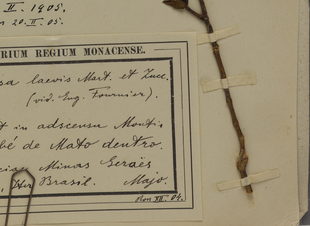 II. 1905.
20. II. 05.
RIUM REGIUM MONACENSE.
sa laevis Mart. et Zucc.
(vid. Eug. Fournier).
in adscensu Montis
de Mato dentro.
Minas Geraës
Brasil. Majo.
XII. 04.